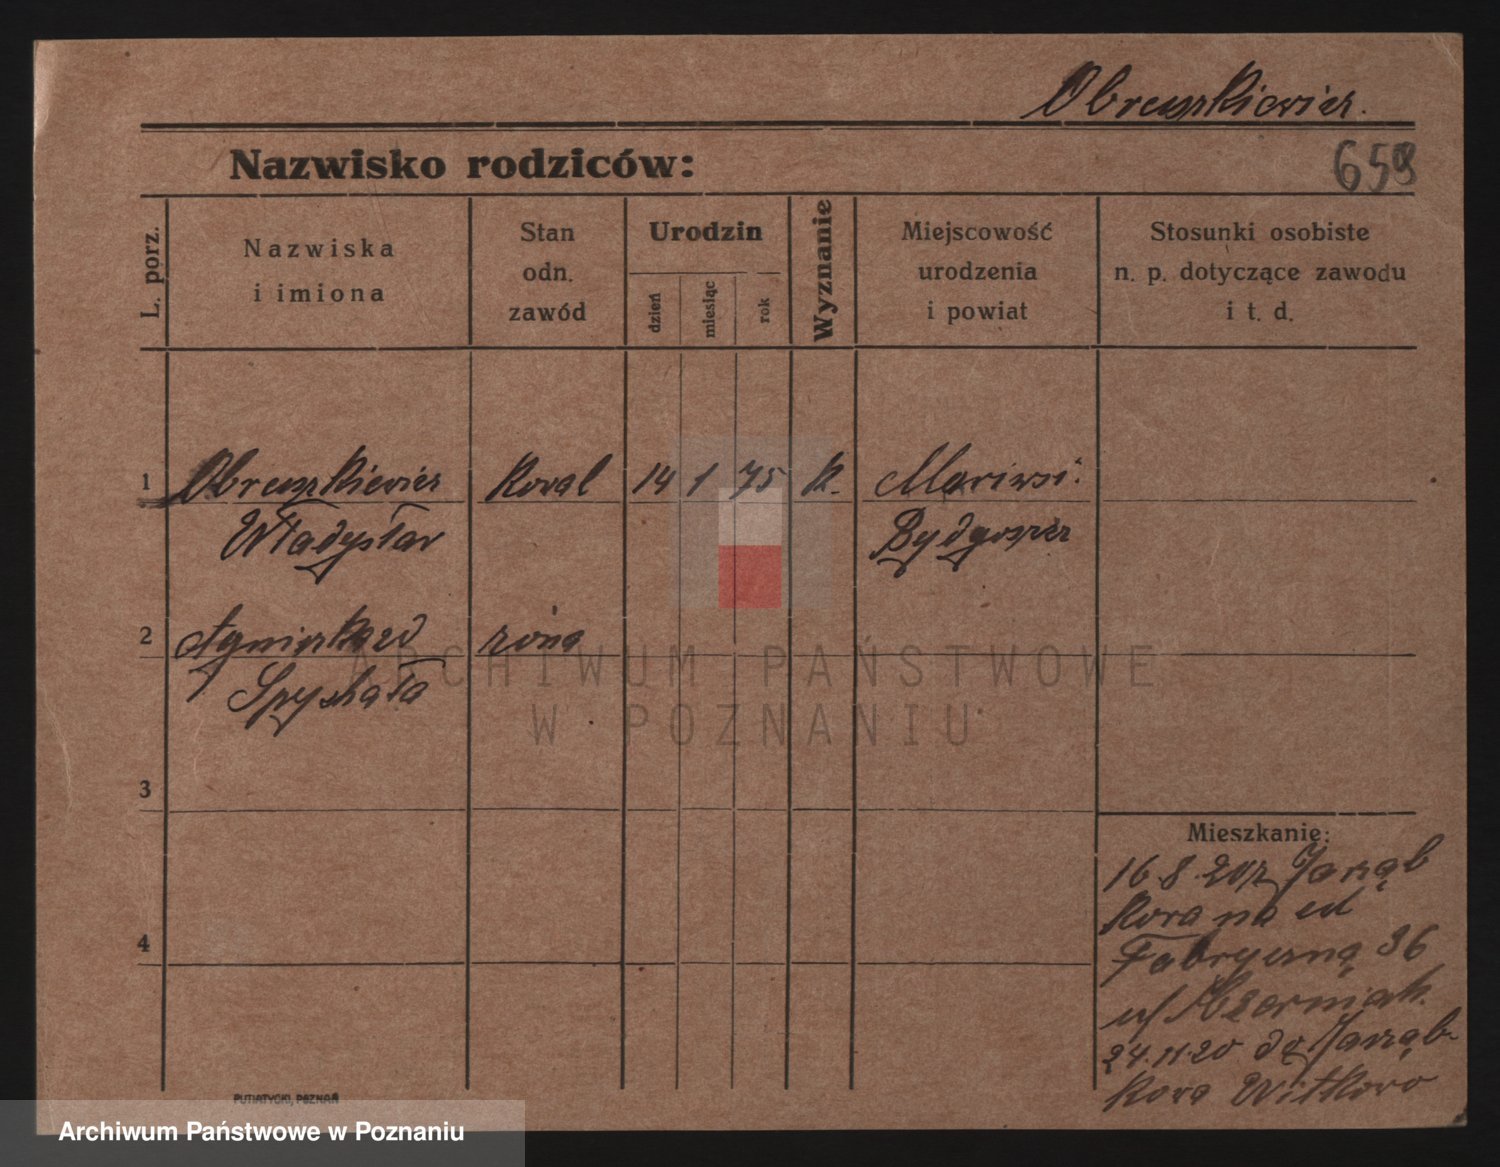 Obreuszkiewicz.
Nazwisko rodziców:
659
L. porz.
Nazwiska
i imiona
Stan
odn.
zawód
Urodzin
dzień
miesiąc
rok
Wyznanie
Miejscowość
urodzenia
i powiat
Stosunki osobiste
n. p. dotyczące zawodu
i t. d.
1
Kowal
14 1 75 k.
Władysław
Bydgoszcz
2
Agnieszka zd
żona
Spychała
ARCHIWUM PAŃSTWOWE
W POZNANIU
3
Mieszkanie:
16.8.20 z Jarząb
kowa na ul
4
Fabryczną 36
24.11.20 do Jarząb-
kowa Witkowo
PUTIATYCKI, POZNAŃ
Archiwum Państwowe w Poznaniu